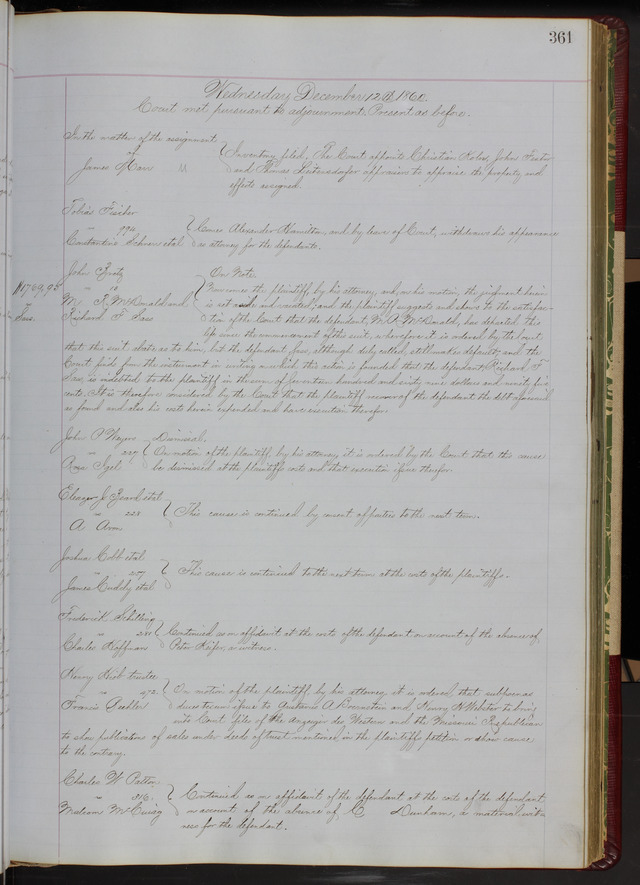 361
Wednesday December 12th 1860.
Court met pursuant to adjournment Present as before.
In the matter of the assignment
of
James Marr
Inventory filed, The Court appoints Christian Koles, John
and Thomas Leitensdorfer appraisers to appraise the property and
effects assigned
Tobias Fischer
" 774
Constantine et al
Comes Alexander Hamilton, and by leave of Court, withdraws his appearance
as attorney for the defendants.
John
" 10
Wm P. McDonald and
Richard F Sass
$1769.95
Sass
On Note
Now comes the plaintiff by his attorney, and, on his motion, the judgment herein
is set aside and vacated; and the plaintiff suggests and shows to the satisfac-
tion of the Court that the defendant, Wm P. McDonald, has departed this
life since the commencement of this suit, wherefore it is ordered by the Court
that this suit abate as to him, but the defendant Sass, although duly called, still makes default; and the
Court finds from the instrument in writing on which this action is founded that the defendant Richard F
Sass, is indebted to the plaintiff in the sum of Seventeen hundred and sixty nine dollars and ninety five
cents. It is therefore considered by the Court that the plaintiff recover of the defendant the debt aforesaid
as found and also his costs herein expended and have execution therefor
John P
" 229
Rosa Igel
Dismissal.
On motion of the plaintiff by his attorney it is ordered by the Court that this cause
be dismissed at the plaintiffs costs and that execution issue therefor
Eleazer J et al
" 228
A
This cause is continued by consent of parties to the next term.
Joshua Cobb et al
"
James Cuddy et al
This cause is continued to the next term at the costs of the plaintiffs.
Frederick Schilling
" 241
Charles Hoffman
Continued as on affidavit at the costs of the defendant on account of the absence of
Peter Keifer, a witness.
Henry trustee
" 272
Francis
On motion of the plaintiff by his attorney it is ordered that subpoenas
duces tecum issue to Gustavus A and Henry H Webster to bring
into Court files of the Anzeiger des Westens and the Missouri Republican
to show publications of sales under deeds of trust mentioned in the plaintiffs petition or show cause
to the contrary.
Charles W
" 316
Malcom McCuaig
Continued as on affidavit of the defendant at the costs of the defendant
on account of the absence of C Dunham, a material wit-
ness for the defendant.